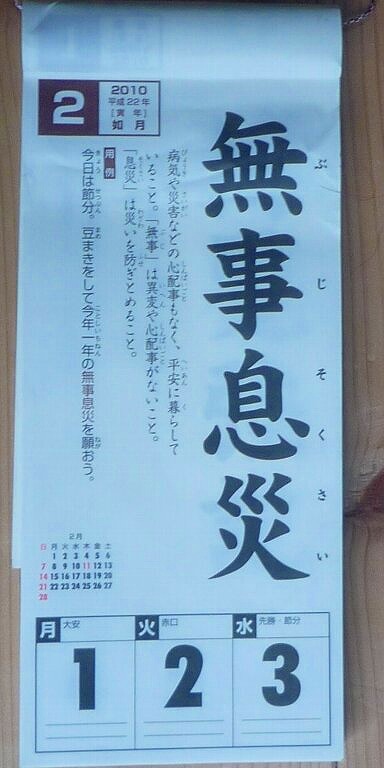 2
2010
平成22年
[寅年]
如月
無事息災
ぶじそくさい
病気や災害などの心配事もなく、平安に暮らして
いること。「無事」は異変や心配事がないこと。
「息災」は災いを防ぎとめること。
用例
今日は節分。豆まきをして今年一年の無事息災を願おう。
2月
日 月 火 水 木 金 土
1 2 3 4 5 6
7 8 9 10 11 12 13
14 15 16 17 18 19 20
21 22 23 24 25 26 27
28
月 大安
1
火 赤口
2
水 先勝・節分
3